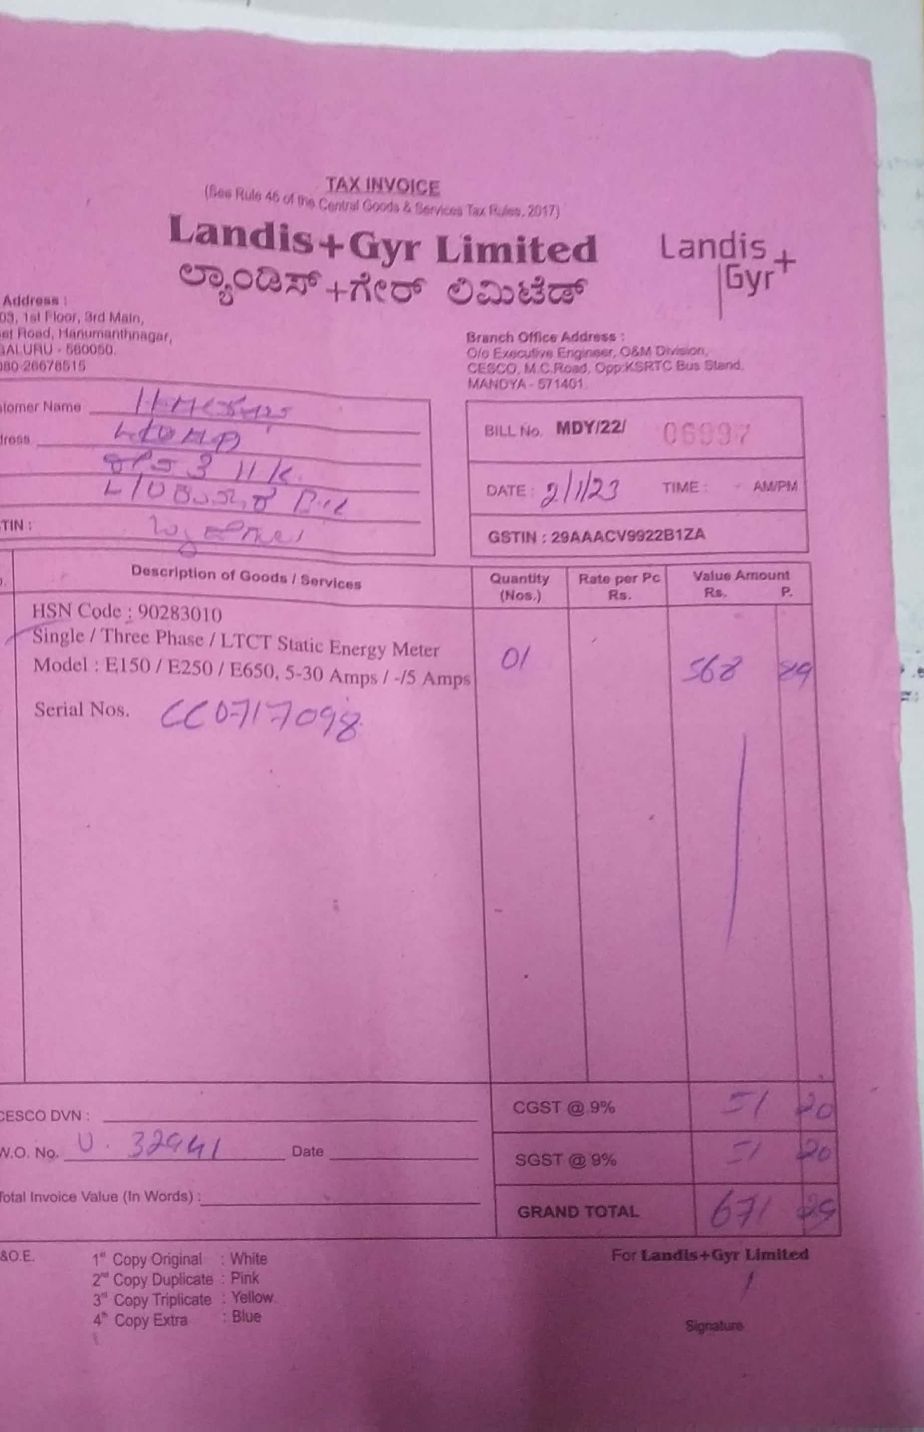 TAX INVOICE
(See Rule 46 of the Central Goods & Services Tax Rules, 2017)
Landis+Gyr Limited
ಲ್ಯಾಂಡಿಸ್+ಗೇರ್ ಲಿಮಿಟೆಡ್
Landis
Gyr+
Address :
03, 1st Floor, 3rd Main,
Road, Hanumanthnagar,
GALURU - 560050.
080-26678515
Branch Office Address :
O/o Executive Engineer, O&M Division,
CESCO, M.C.Road, Opp:KSRTC Bus Stand.
MANDYA - 571401.
tomer Name
dress
TIN :
BILL No. MDY/22/ 06997
DATE : 2/1/23 TIME : AM/PM
GSTIN : 29AAACV9922B1ZA
Description of Goods / Services Quantity (Nos.) Rate per Pc Rs. Value Amount Rs. P.
HSN Code : 90283010
Single / Three Phase / LTCT Static Energy Meter
Model : E150 / E250 / E650, 5-30 Amps / -/5 Amps 01 568 89
Serial Nos. CC0717098
CESCO DVN :
W.O. No. U. 32941 Date
Total Invoice Value (In Words) :
CGST @ 9% 51 20
SGST @ 9% 51 20
GRAND TOTAL 671 29
&O.E.
1st Copy Original : White
2nd Copy Duplicate : Pink
3rd Copy Triplicate : Yellow
4th Copy Extra : Blue
For Landis+Gyr Limited
Signature